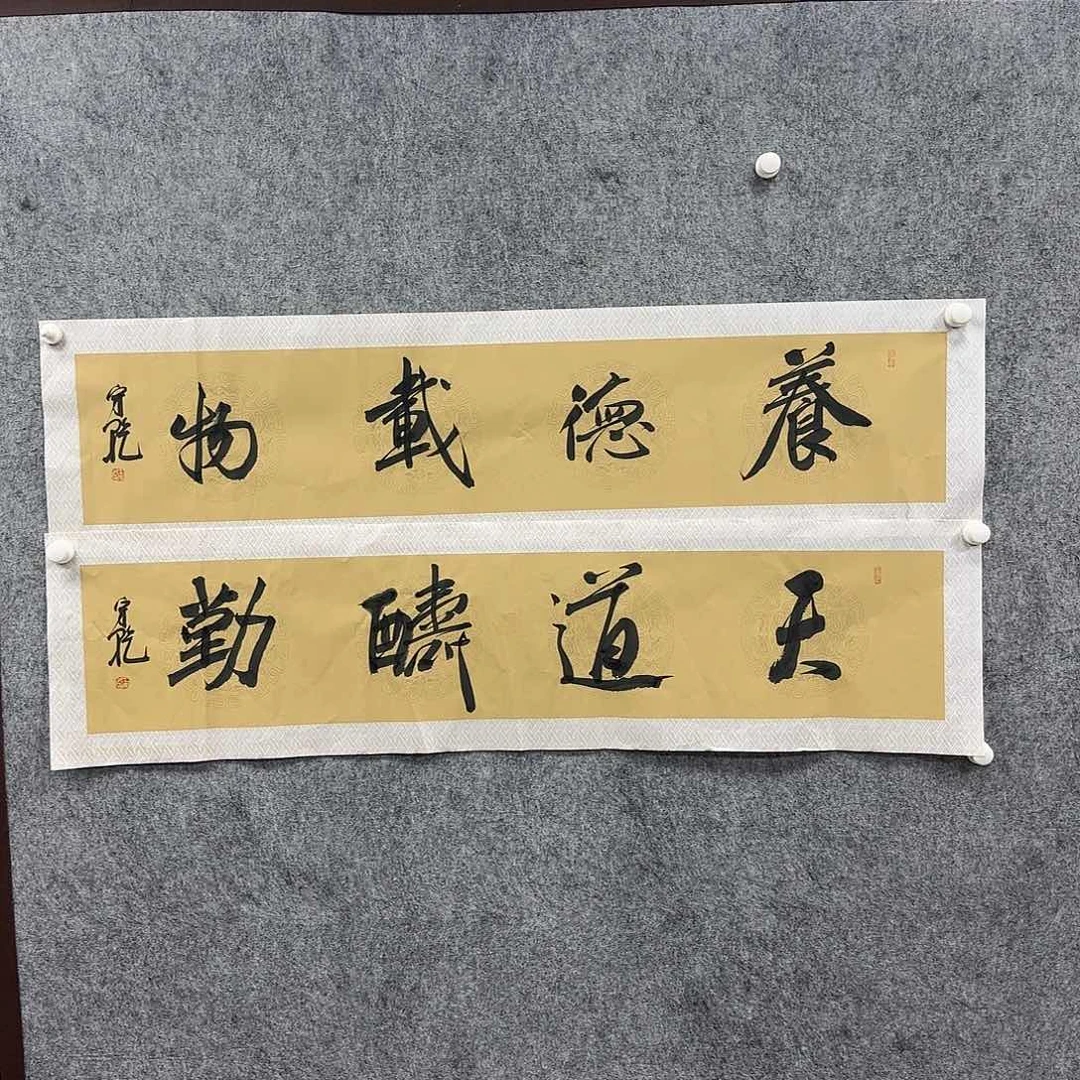 養德載物
守乾
天道酬勤
守乾